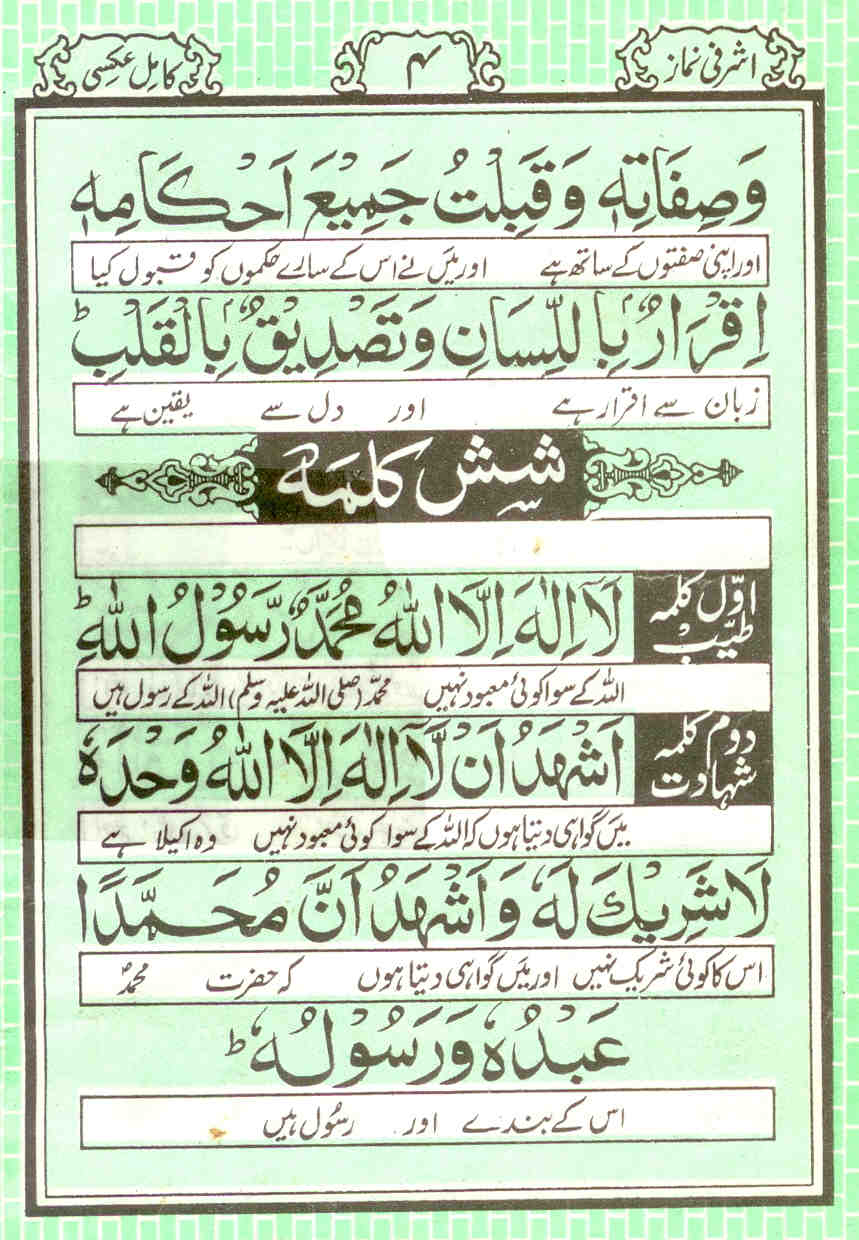 اشرفی نماز ۴ کامل عکسی
وَصِفَاتِهٖ وَقَبِلْتُ جَمِيْعَ اَحْكَامِهٖ
اور اپنی صفتوں کے ساتھ ہے اور میَں نے اس کے سارے حکموں کو قبول کیا
اِقْرَارٌۢ بِاللِّسَانِ وَتَصْدِيْقٌۢ بِالْقَلْبِ ؕ
زبان سے اقرار ہے اور دل سے یقین ہے
شش کلمہ
اوّل کلمہ طیّب
لَآ اِلٰهَ اِلَّا اللّٰهُ مُحَمَّدٌ رَّسُوْلُ اللّٰهِ ؕ
اللہ کے سوا کوئی معبود نہیں محمّد (صلی اللہ علیہ وسلم) اللہ کے رسول ہیں
دوم کلمہ شہادت
اَشْهَدُ اَنْ لَّآ اِلٰهَ اِلَّا اللّٰهُ وَحْدَهٗ
میَں گواہی دیتا ہوں کہ اللہ کے سوا کوئی معبود نہیں وہ اکیلا ہے
لَا شَرِيْكَ لَهٗ وَاَشْهَدُ اَنَّ مُحَمَّدًا
اس کا کوئی شریک نہیں اور میَں گواہی دیتا ہوں کہ حضرت محمدؐ
عَبْدُهٗ وَرَسُوْلُهٗ ؕ
اس کے بندے اور رسُول ہیں